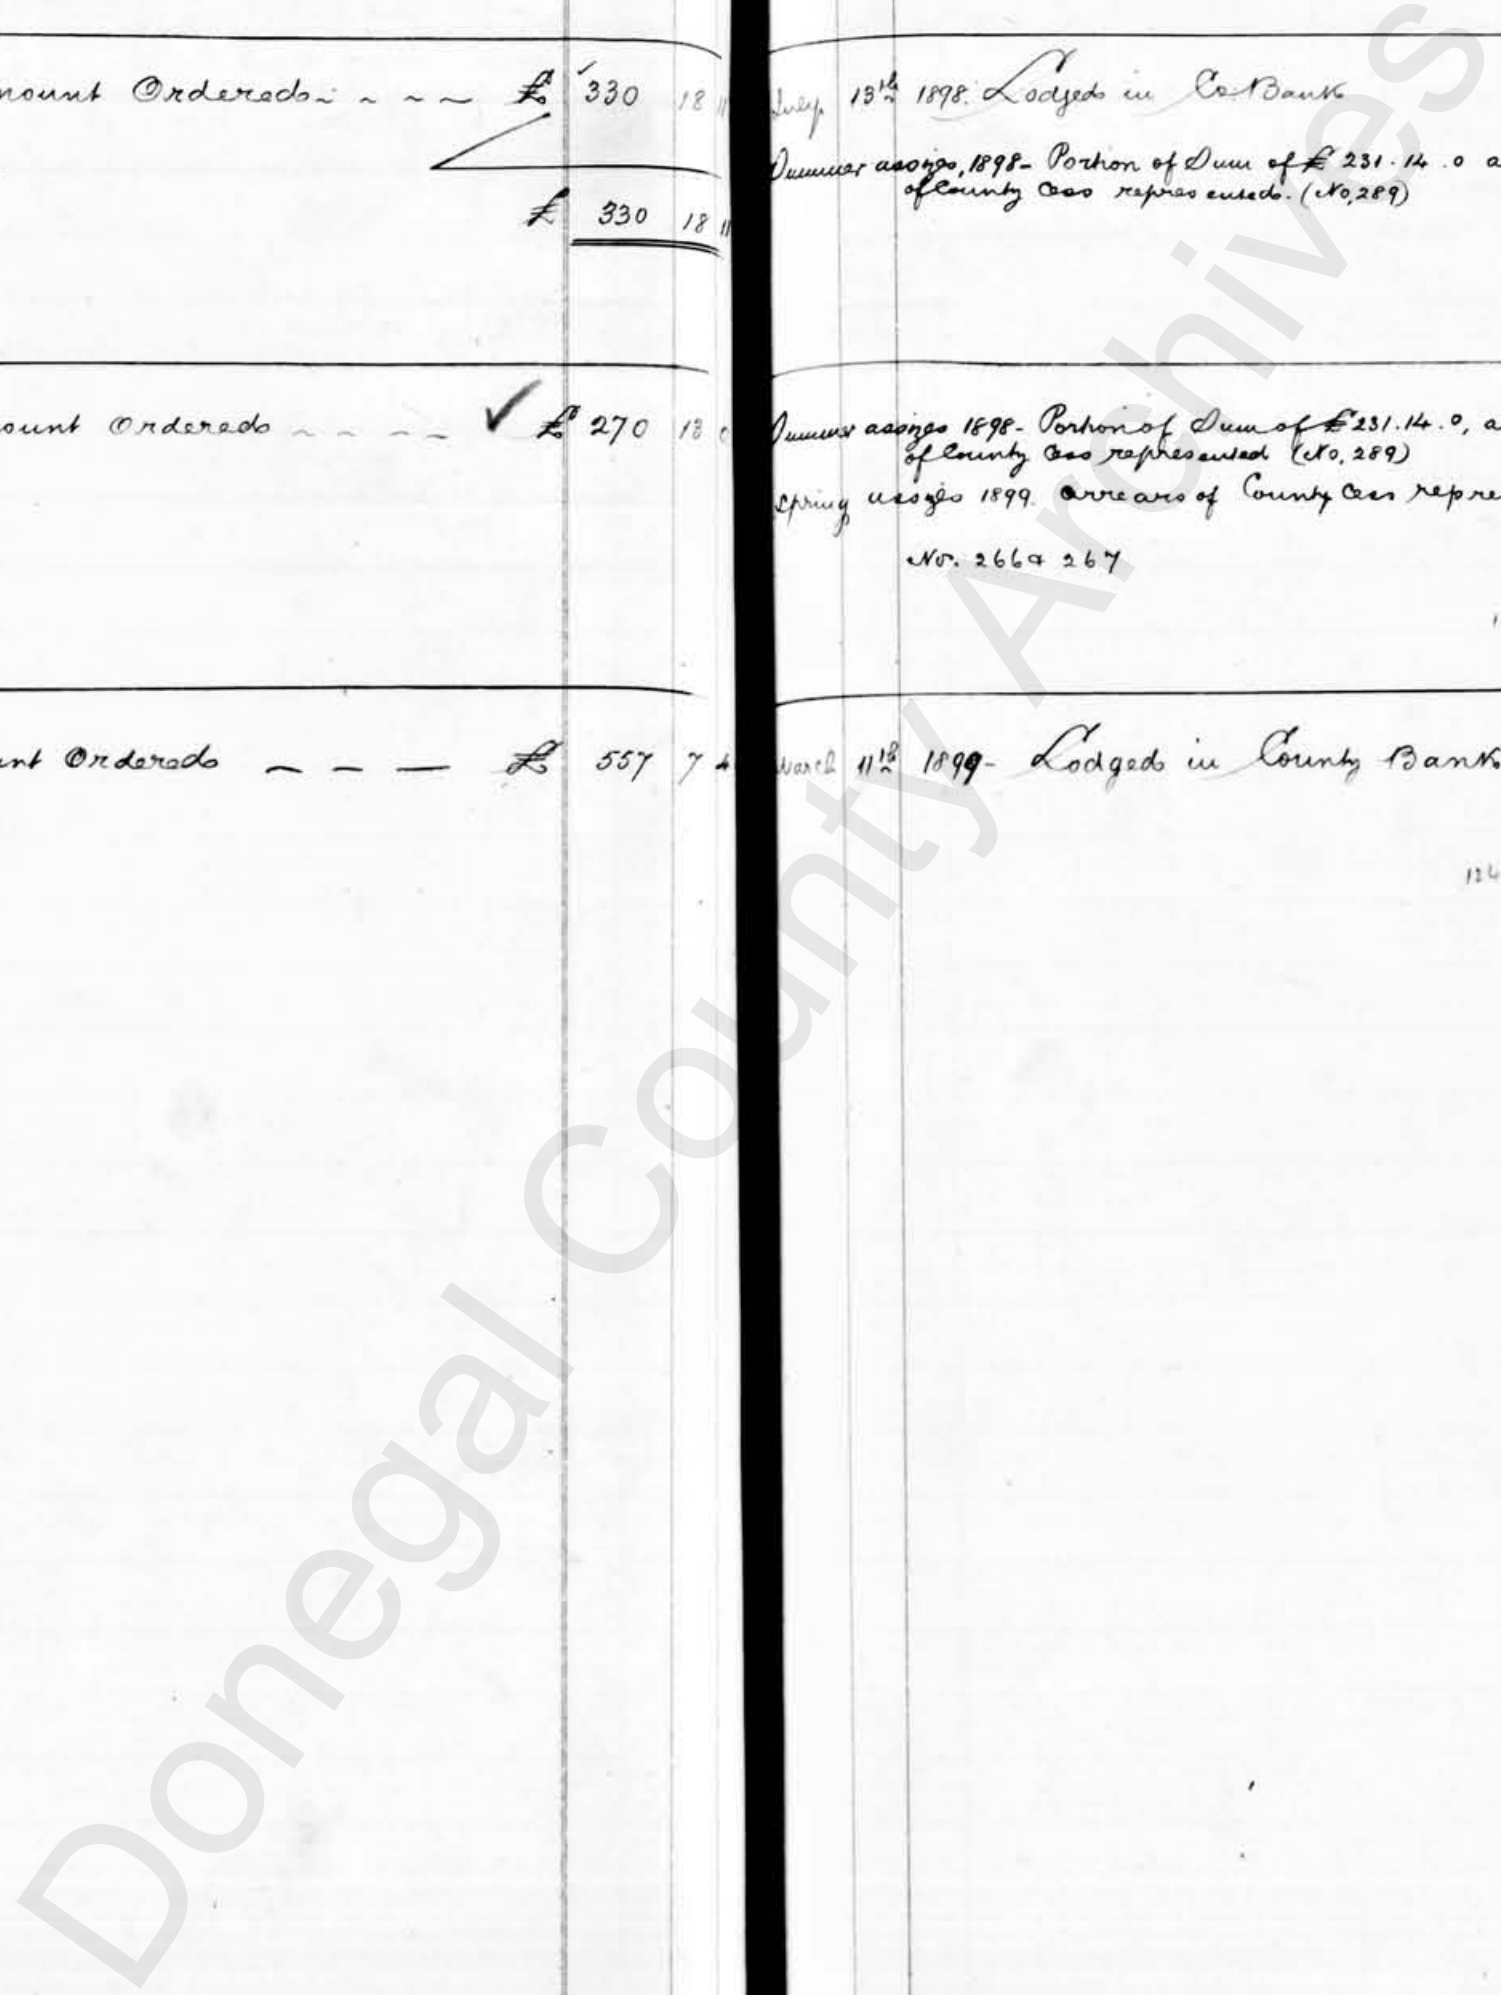 mount Ordered £ 330 18 11
£ 330 18 11
ount Ordered £ 270 13 0
nt Ordered £ 557 7 4
July 13th 1898. Lodged in Co. Bank
Summer assizes, 1898- Portion of Sum of £231.14.0 a
of County Cess represented. (No, 289)
Summer assizes 1898- Portion of Sum of £231.14.0, a
of County Cess represented (No, 289)
Spring assizes 1899. arrears of County Cess repre
No. 266 & 267
March 11th 1899- Lodged in County Bank
124
Donegal County Archives